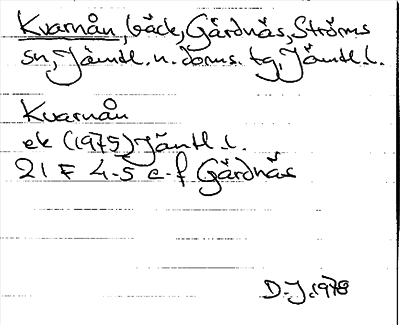 Kvarnån, bäck, Gärdnäs, Ströms
sn, Jämtl. n. doms. tg, Jämtl. l.
Kvarnån
ek (1975) Jämtl. l.
21 F 4-5 e-f Gärdnäs
D-J. 1978